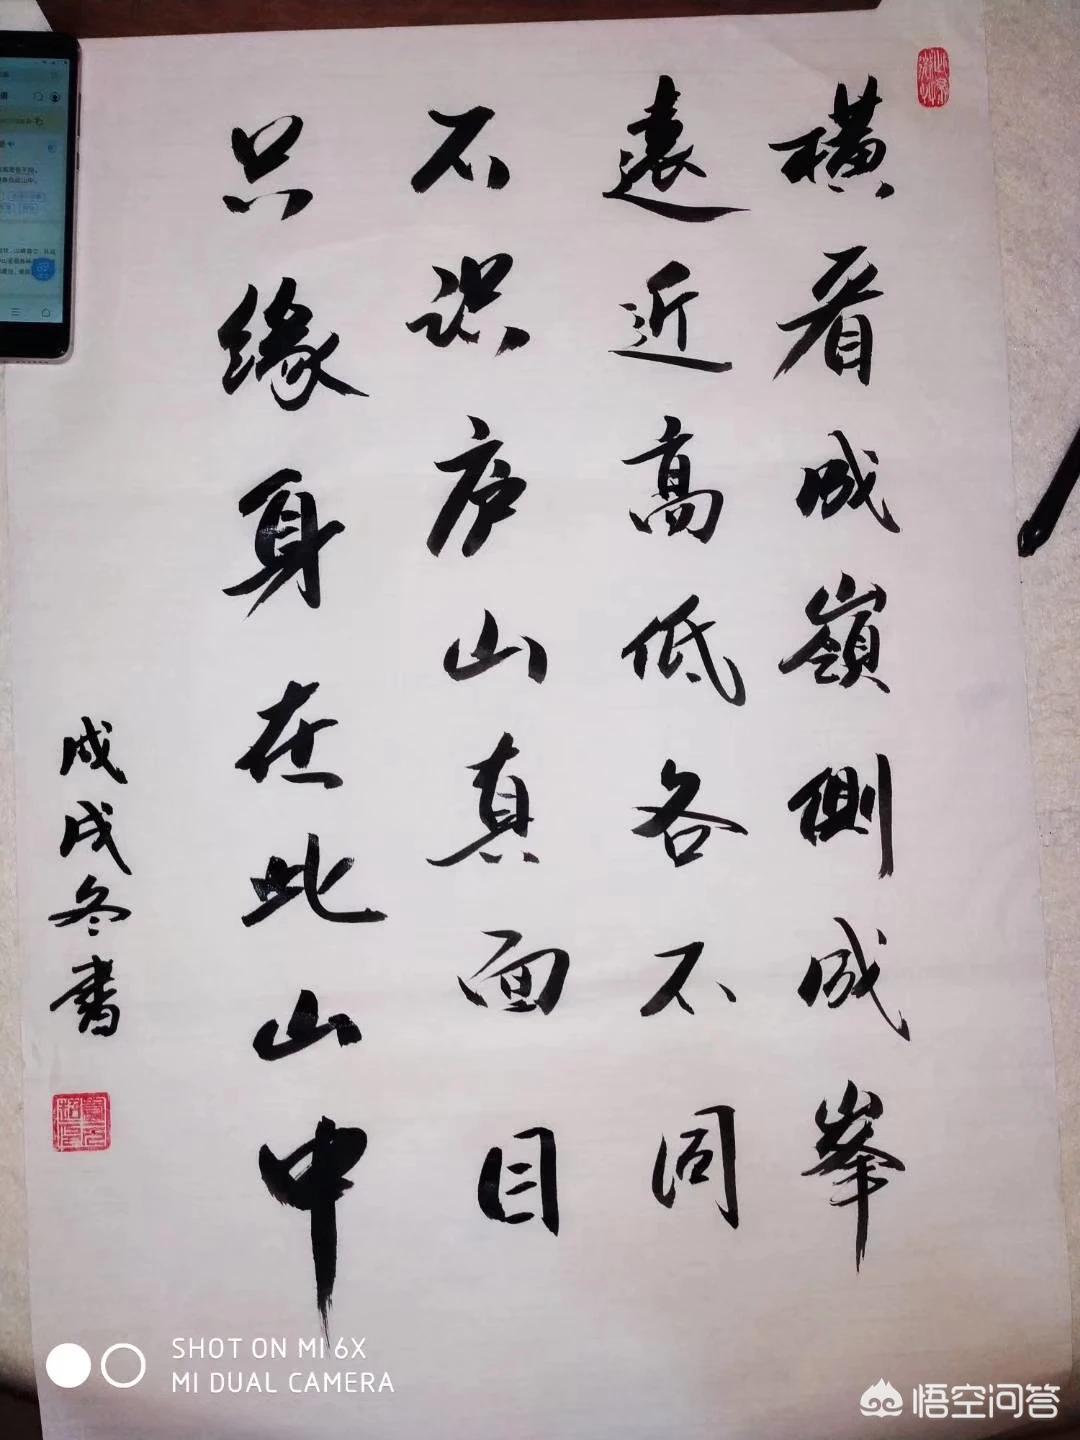 橫看成嶺側成峯
遠近高低各不同
不识庐山真面目
只缘身在此山中
戊戌冬書
SHOT ON MI 6X
MI DUAL CAMERA
悟空问答